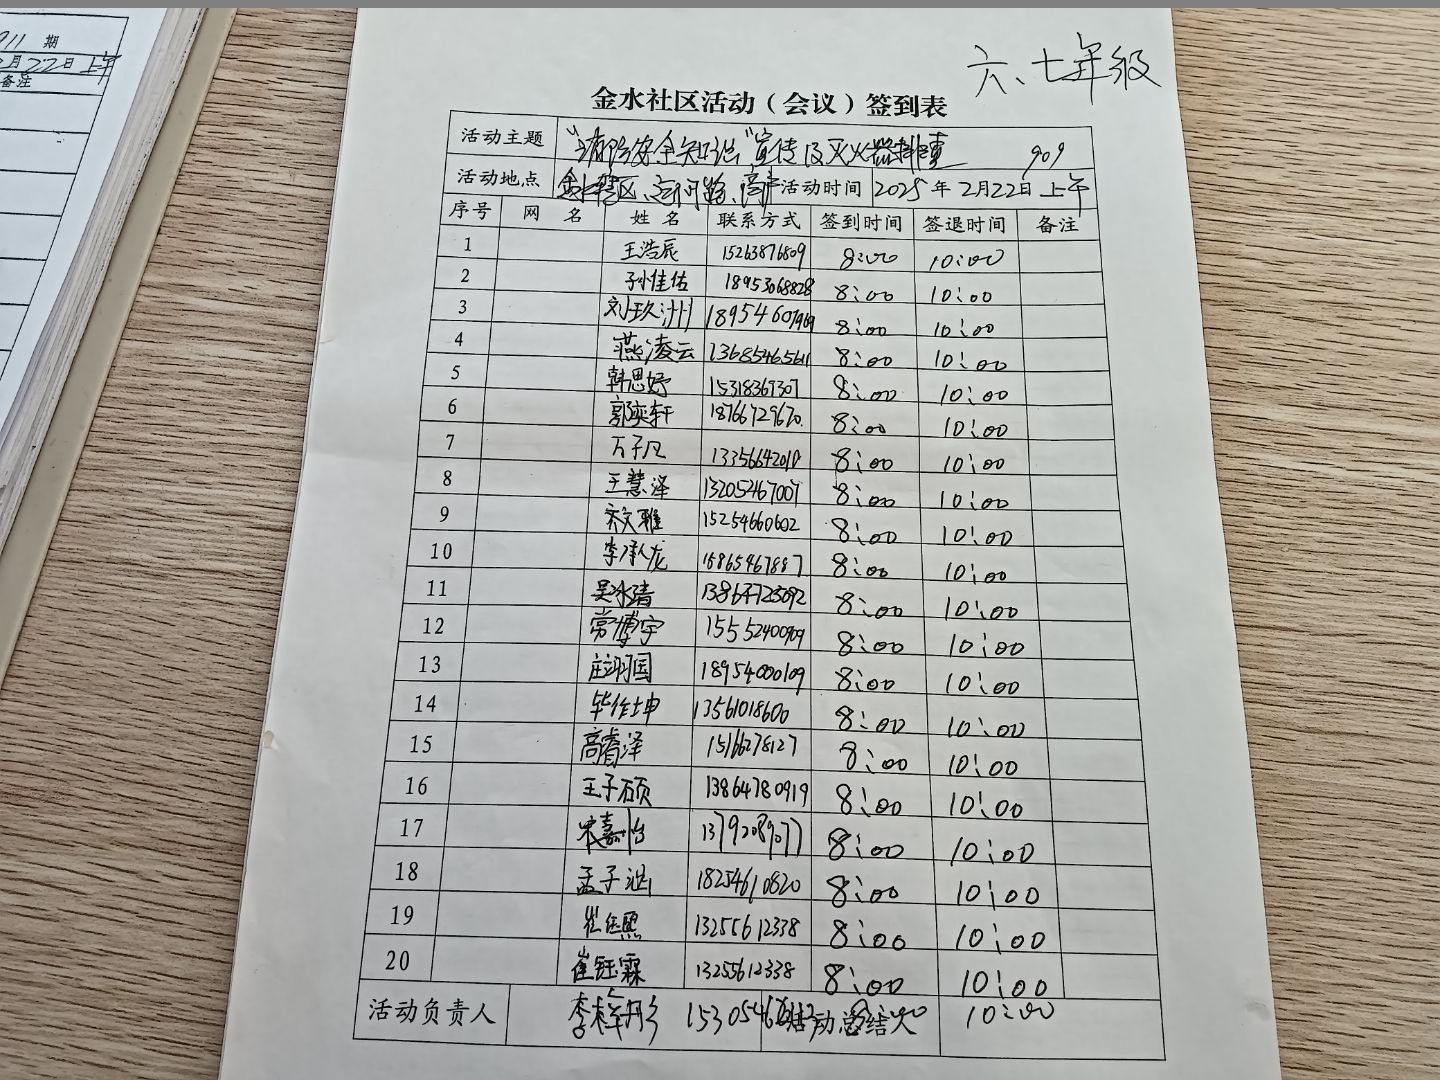 911 期
2月22日 上午
备注
六、七年级
金水社区活动（会议）签到表
活动主题 "消防安全知识"宣传及灭火器排查 909
活动地点 金水社区、运河路、 活动时间 2025年2月22日上午
序号 网 名 姓 名 联系方式 签到时间 签退时间 备注
1 王浩辰 15263876809 8:00 10:00
2 孙佳佑 18953068828 8:00 10:00
3 刘玖洲 18954607969 8:00 10:00
4 燕凌云 13685465611 8:00 10:00
5 韩思妤 15318369307 8:00 10:00
6 郭奕轩 18766729670 8:00 10:00
7 万子凡 13356642010 8:00 10:00
8 王慧泽 13205467007 8:00 10:00
9 齐文雅 15254660602 8:00 10:00
10 李承龙 15865467887 8:00 10:00
11 吴冰清 13864723092 8:00 10:00
12 常博宇 15552400909 8:00 10:00
13 庄翊国 18954000109 8:00 10:00
14 毕作坤 13561018600 8:00 10:00
15 高睿泽 1516278127 8:00 10:00
16 王子硕 13864780919 8:00 10:00
17 宋嘉怡 13792089077 8:00 10:00
18 孟子涵 18254610820 8:00 10:00
19 崔钰熙 13255612338 8:00 10:00
20 崔钰霖 13255612338 8:00 10:00
活动负责人 李 活动总结人 8:00 10:00